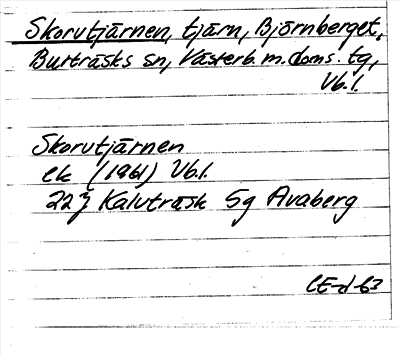 Skorutjärnen, tjärn, Björnberget,
Burträsks sn, Västerb. m. doms. tg,
Vb. l.
Skorutjärnen
ek (1961) Vb. l.
22 J Kalvträsk 5g Avaberg